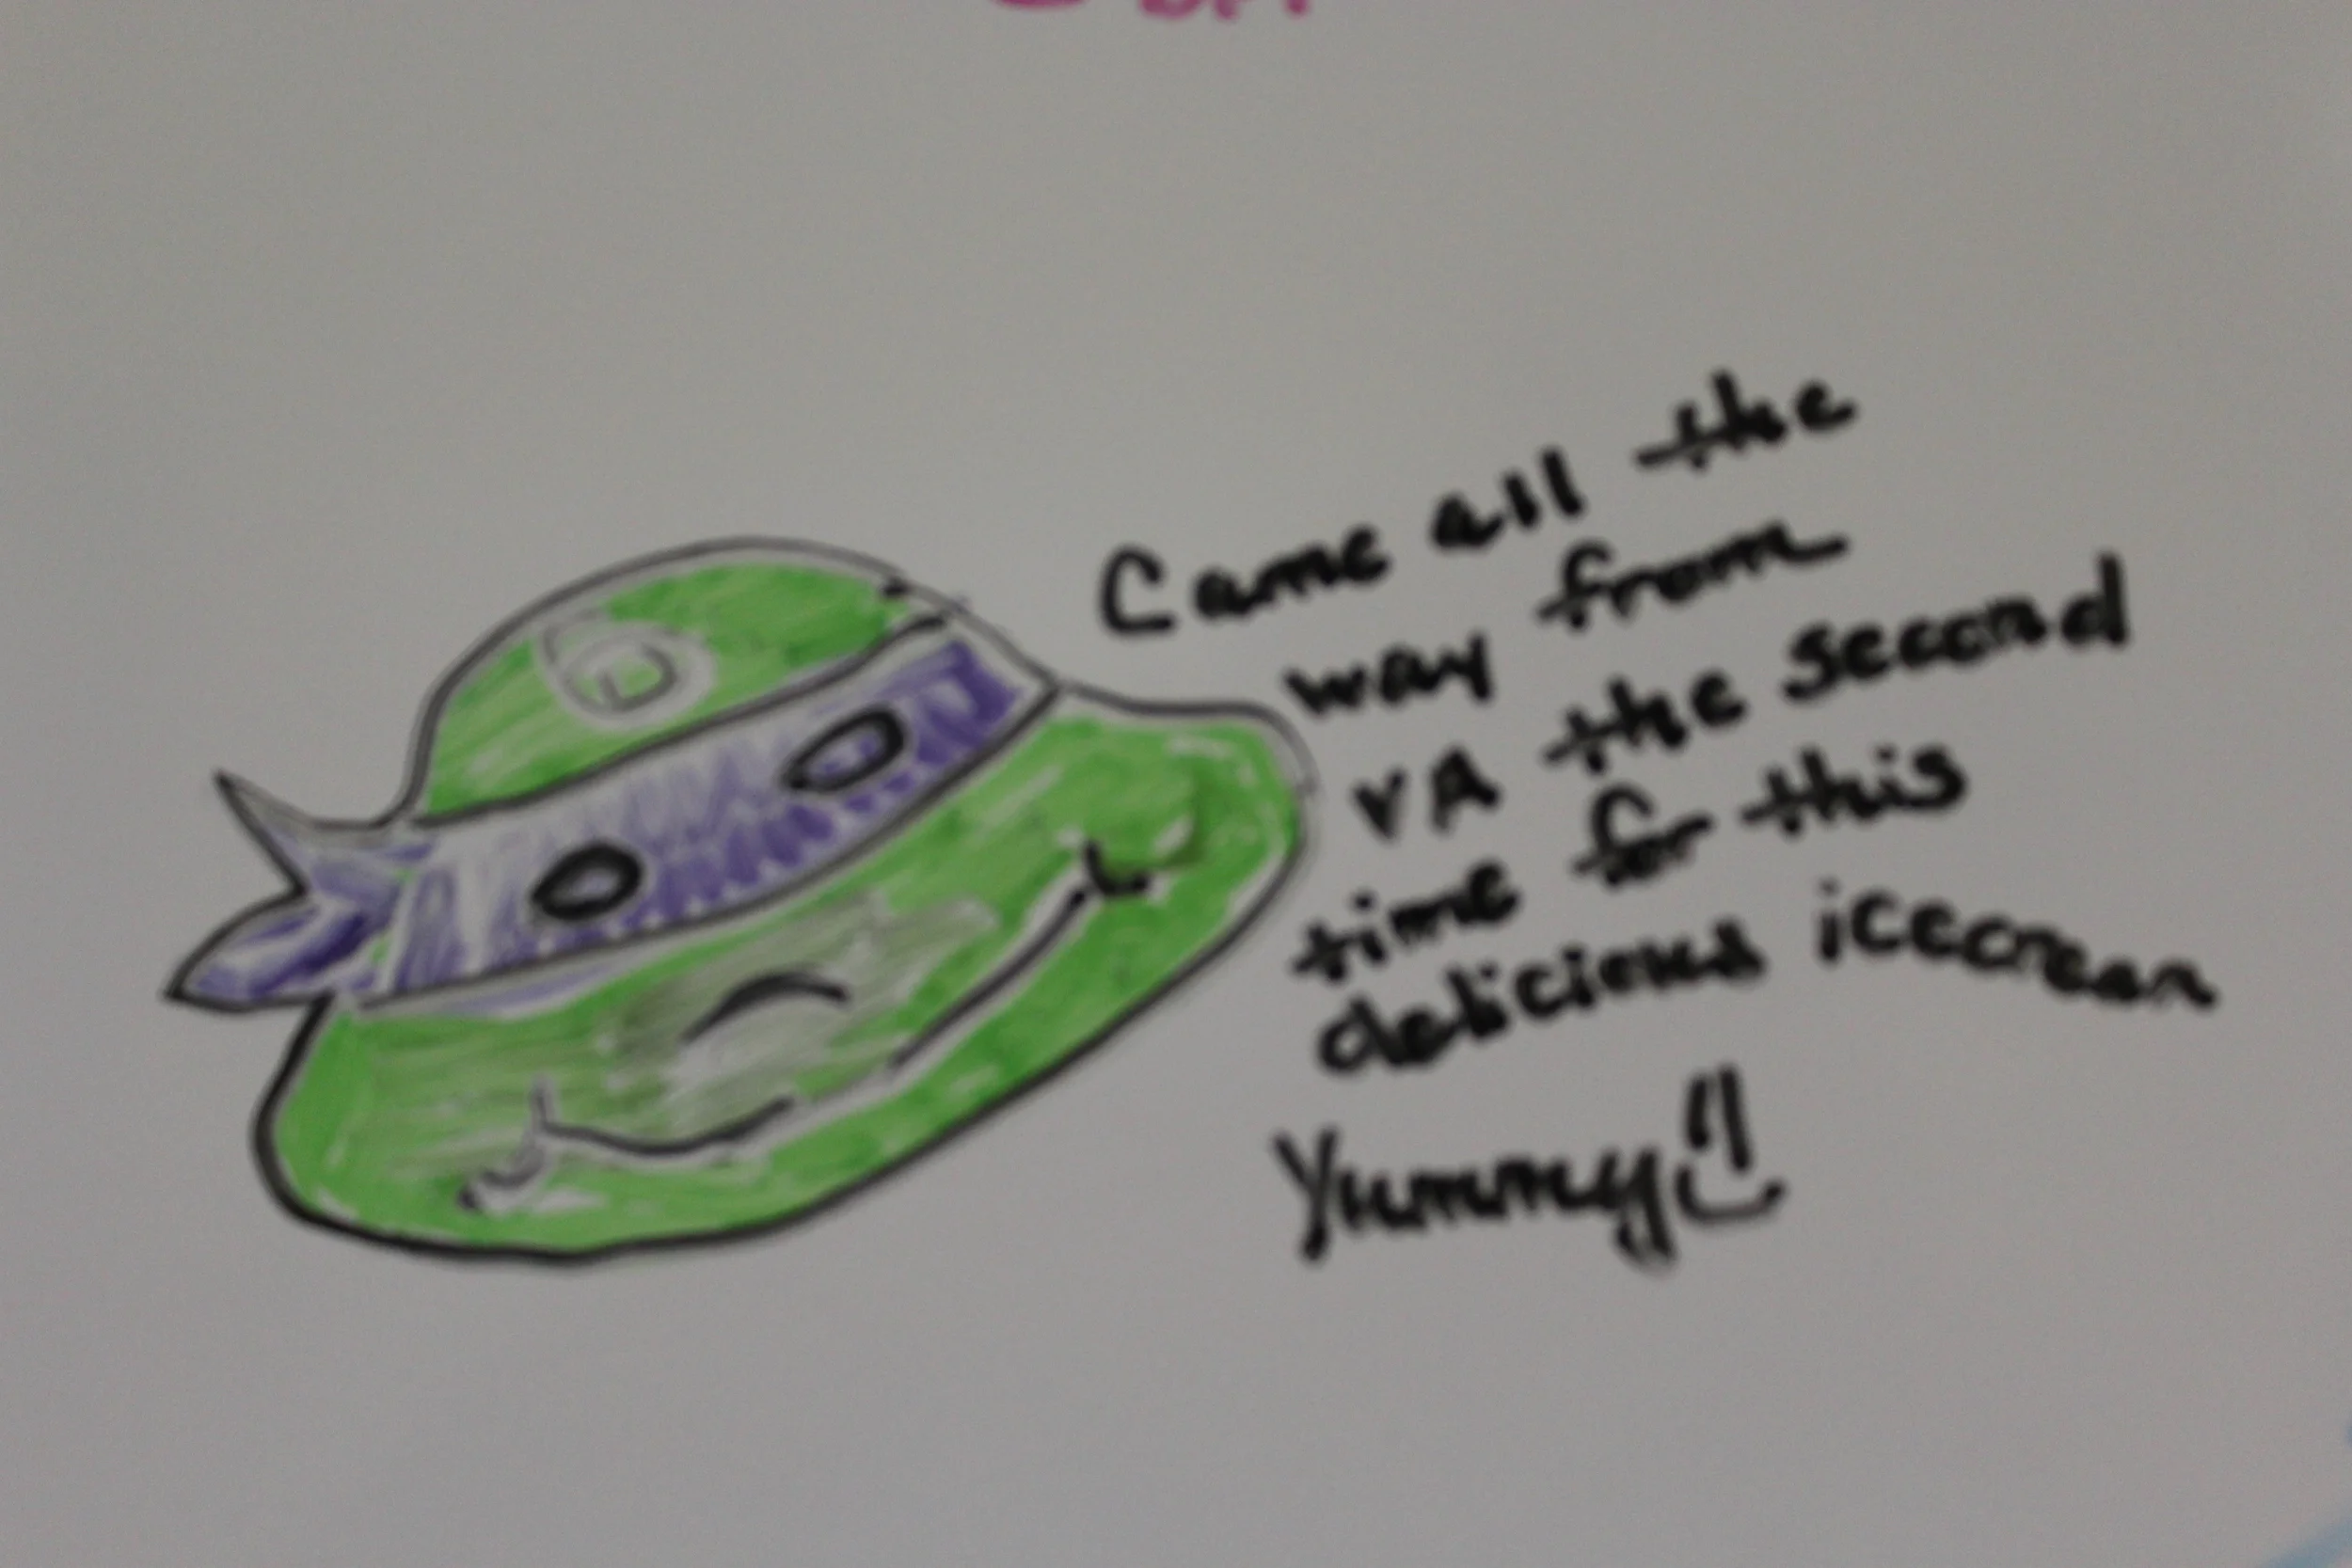 Came all the
way from
VA the second
time for this
delicious icecream
Yummy